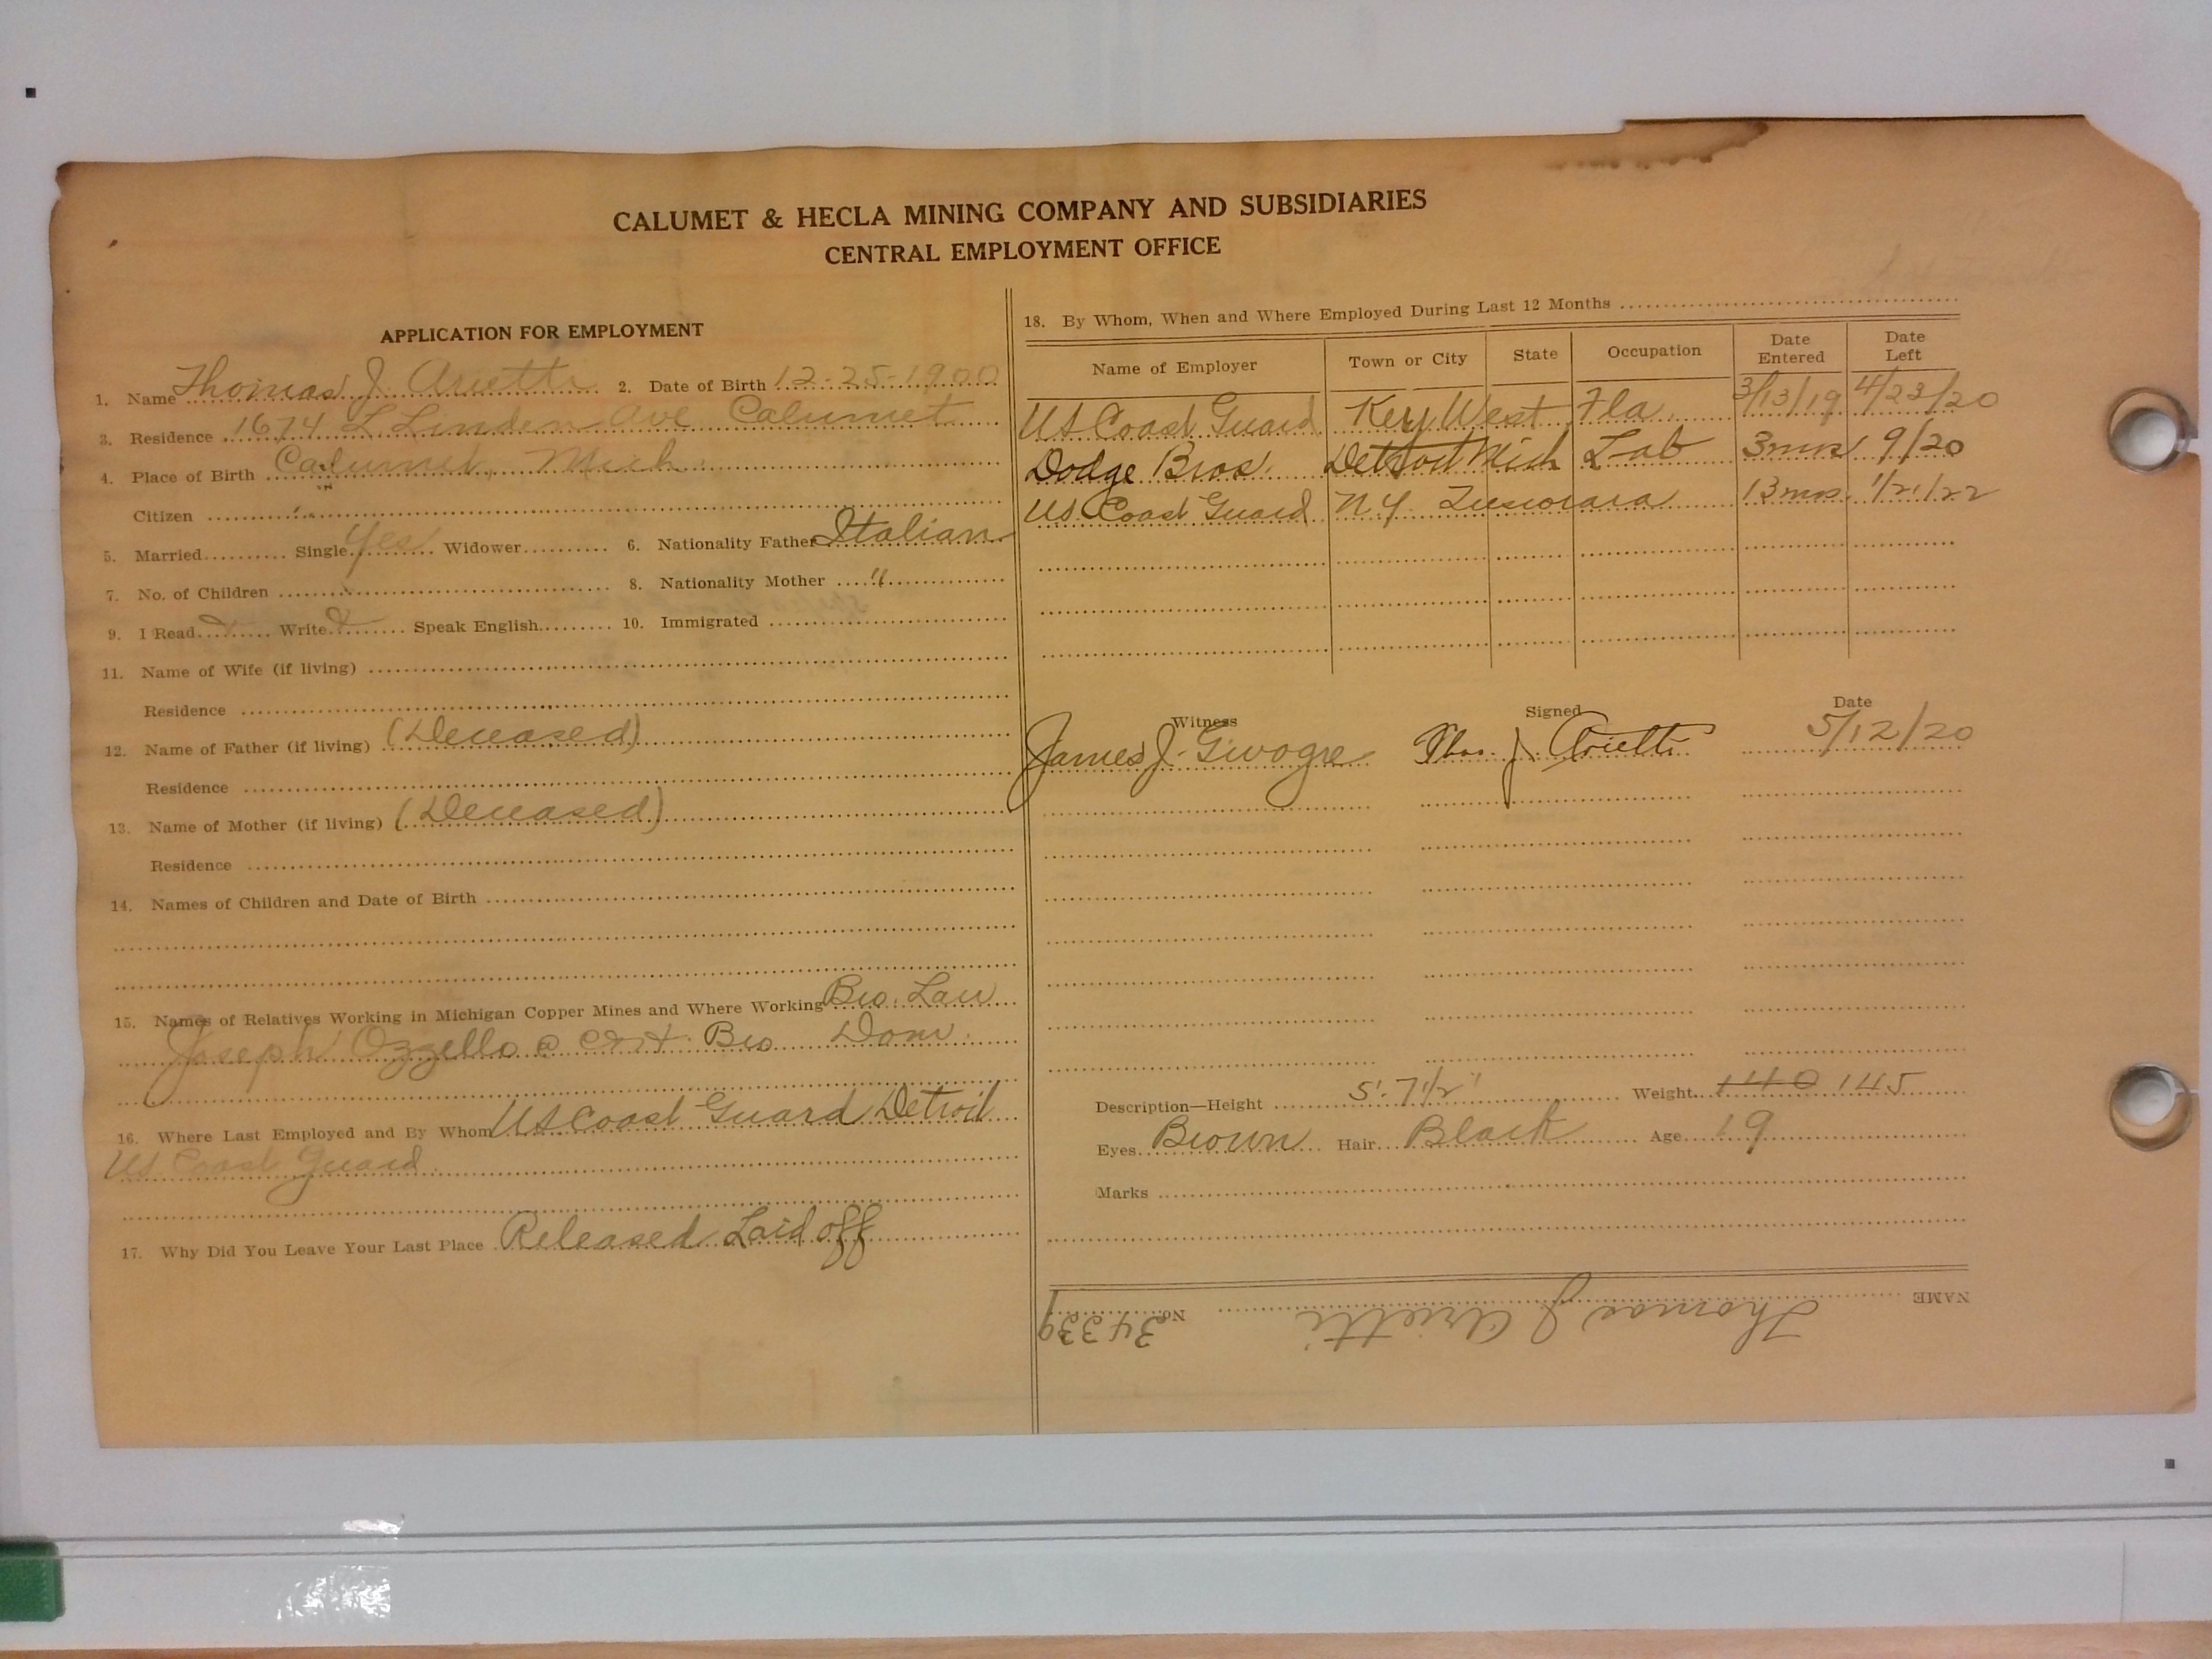 CALUMET & HECLA MINING COMPANY AND SUBSIDIARIES
CENTRAL EMPLOYMENT OFFICE
APPLICATION FOR EMPLOYMENT
1. Name Thomas J. Arietti 2. Date of Birth 12-25-1900
3. Residence 1674 L. Linden Ave Calumet
4. Place of Birth Calumet, Mich.
Citizen "
5. Married Single Yes Widower 6. Nationality Father Italian
7. No. of Children 8. Nationality Mother "
9. I Read Write Speak English 10. Immigrated
11. Name of Wife (if living)
Residence
12. Name of Father (if living) (Deceased)
Residence
13. Name of Mother (if living) (Deceased)
Residence
14. Names of Children and Date of Birth
15. Names of Relatives Working in Michigan Copper Mines and Where Working Bro. Law
Joseph Ozzello @ Bro Dom.
16. Where Last Employed and By Whom US Coast Guard Detroit
US Coast Guard
17. Why Did You Leave Your Last Place Released Laid off
18. By Whom, When and Where Employed During Last 12 Months
Name of Employer Town or City State Occupation Date Entered Date Left
US Coast Guard Key West Fla. 3/13/19 4/23/20
Dodge Bros. Detroit Mich Lab 3 mos 9/20
US Coast Guard N.Y. 13 mos. 1/21/22
Witness Signed Date
James J. Thos. J. Arietti 5/12/20
Description—Height 5' 7 1/2" Weight 140 145
Eyes Brown Hair Black Age 19
Marks
NAME Thomas J Arietti No. 34339